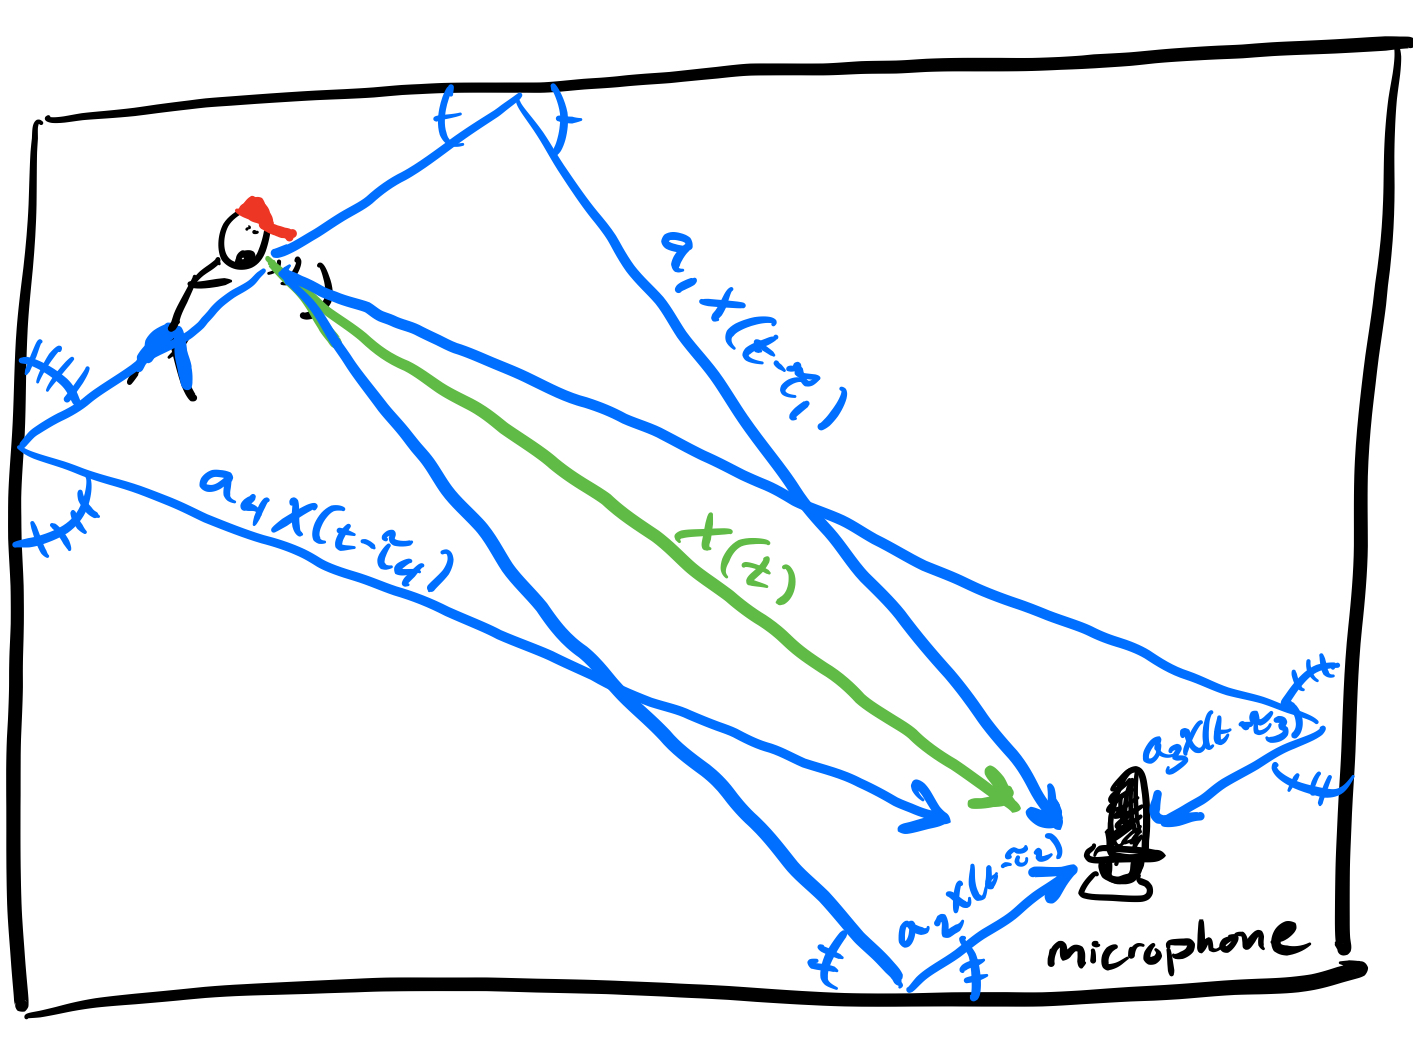 a₁x(t-τ₁)
a₄x(t-τ₄)
x(t)
a₃x(t-τ₃)
a₂x(t-τ₂)
microphone